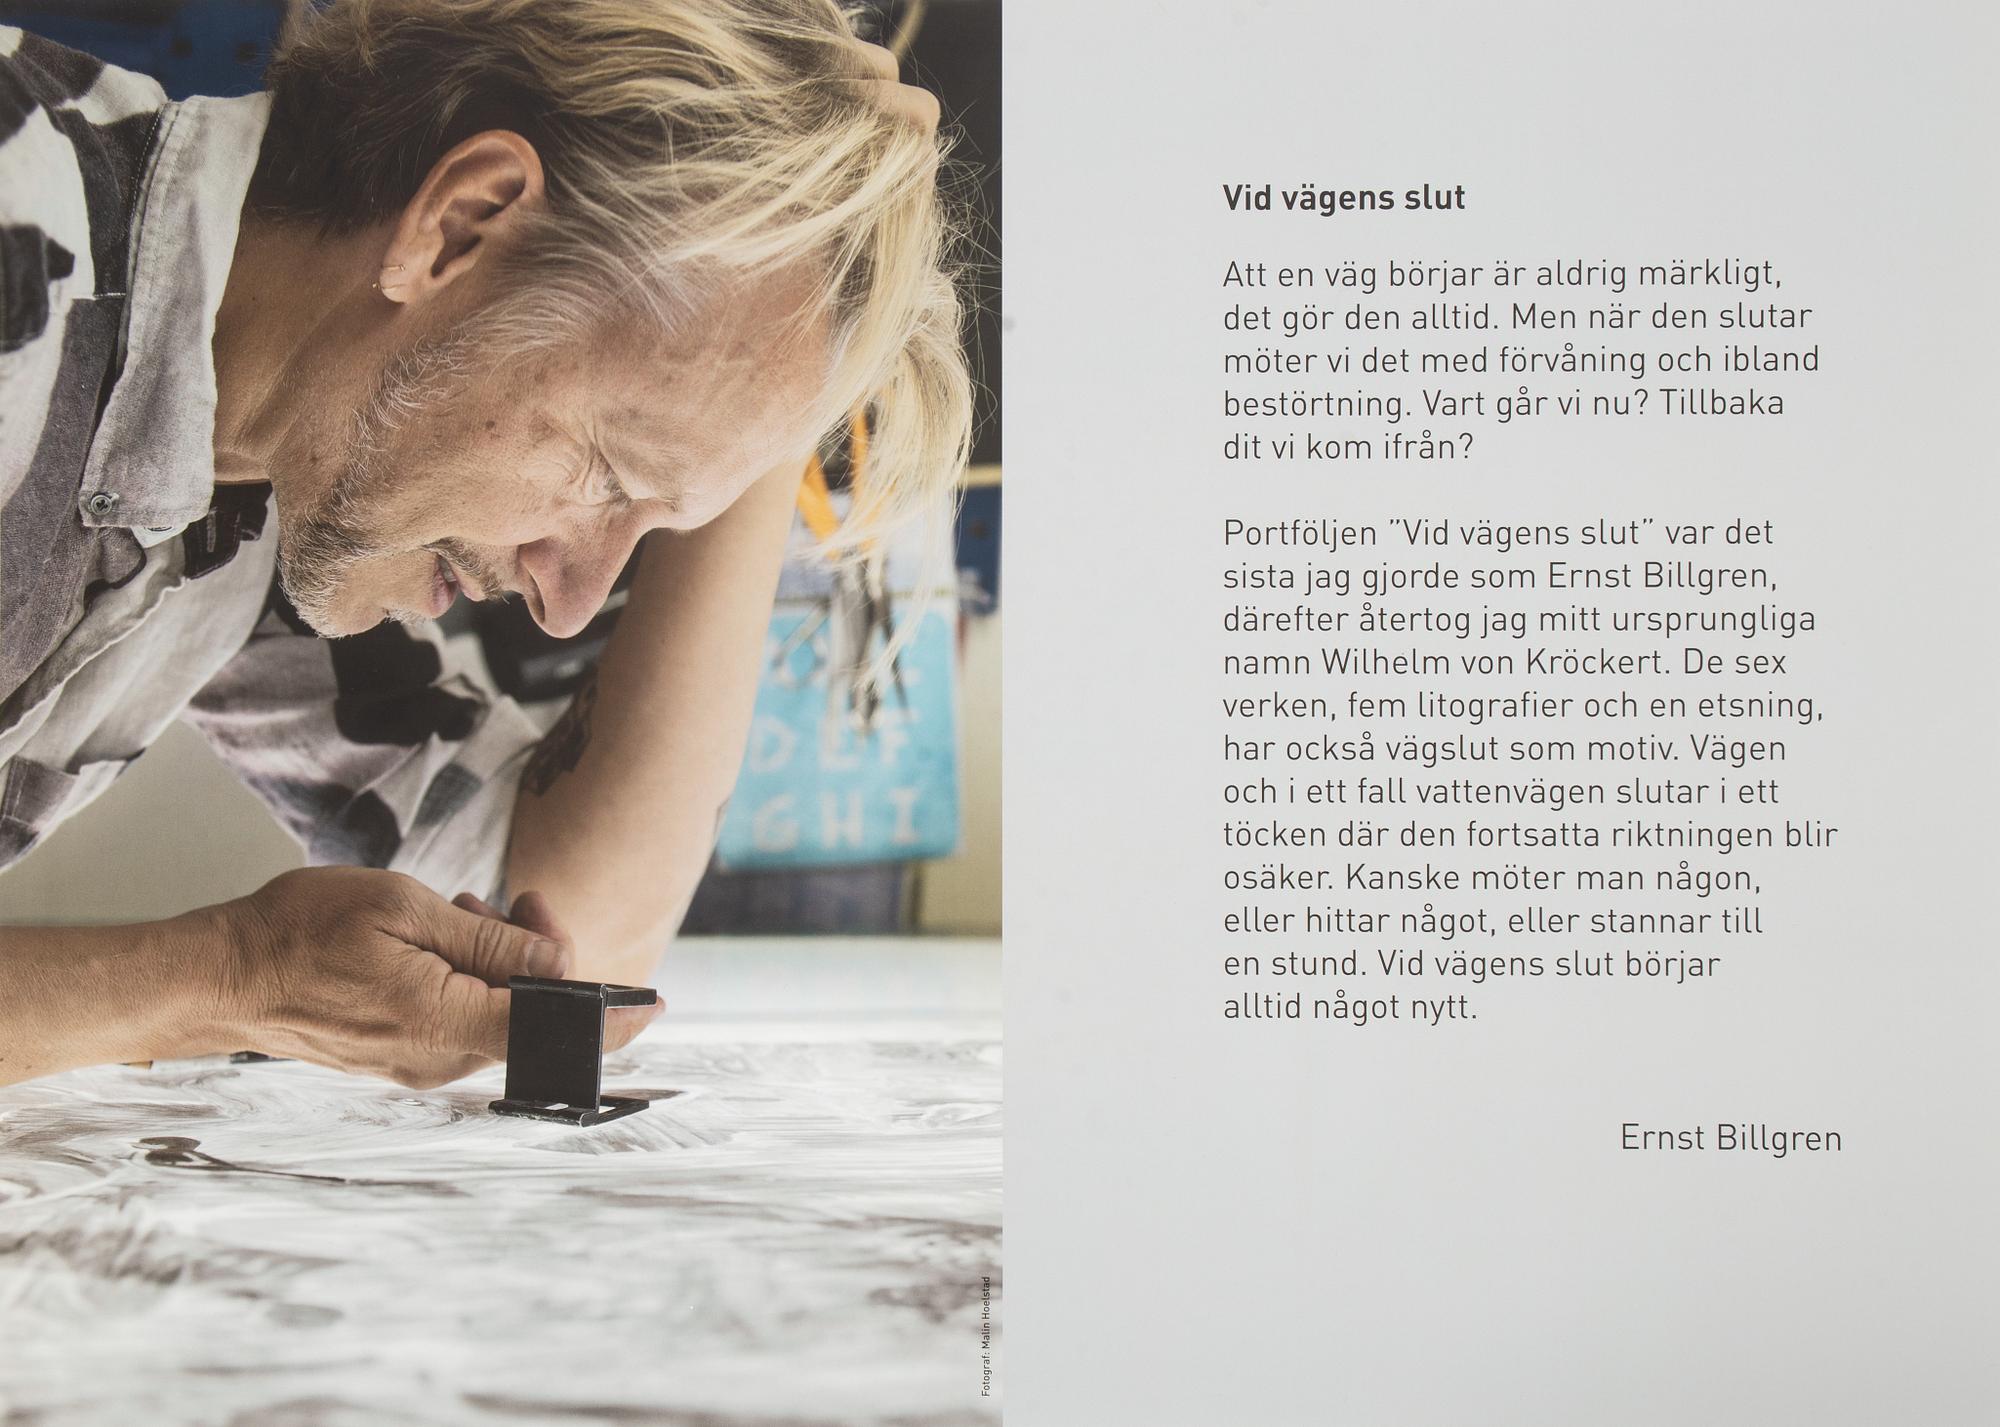 Vid vägens slut
Att en väg börjar är aldrig märkligt,
det gör den alltid. Men när den slutar
möter vi det med förvåning och ibland
bestörtning. Vart går vi nu? Tillbaka
dit vi kom ifrån?
Portföljen ”Vid vägens slut” var det
sista jag gjorde som Ernst Billgren,
därefter återtog jag mitt ursprungliga
namn Wilhelm von Kröckert. De sex
verken, fem litografier och en etsning,
har också vägslut som motiv. Vägen
och i ett fall vattenvägen slutar i ett
töcken där den fortsatta riktningen blir
osäker. Kanske möter man någon,
eller hittar något, eller stannar till
en stund. Vid vägens slut börjar
alltid något nytt.
Ernst Billgren
Fotograf: Malin Hoelstad
D E F
G H I